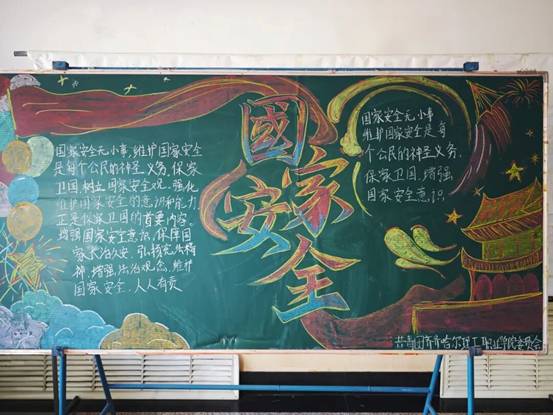 国家安全无小事，维护国家安全
是每个公民的神圣义务，保家
卫国，树立国家安全观，强化
维护国家安全的意识和能力
正是保家卫国的首要内容，
增强国家安全意识，保障国
家长治久安，弘扬宪法精
神，增强法治观念，维护
国家安全，人人有责
國家
安全
国家安全无小事
维护国家安全是每
个公民的神圣义务，
保家卫国，增强
国家安全意识
共青团齐齐哈尔理工职业学院委员会